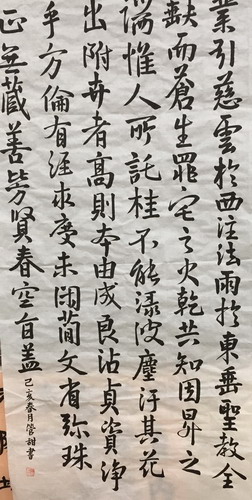 業引慈雲於西注法雨於東垂聖教全
缺而蒼生罪宅之火乾共知因昇之
端惟人所託桂不能淥波塵汙其花
出附卉者高則本由成良沾貞資淨
乎方倫有涯求慶未闲蕳文省弥珠
正無藏善賢春空百盖
己亥春月管甜書